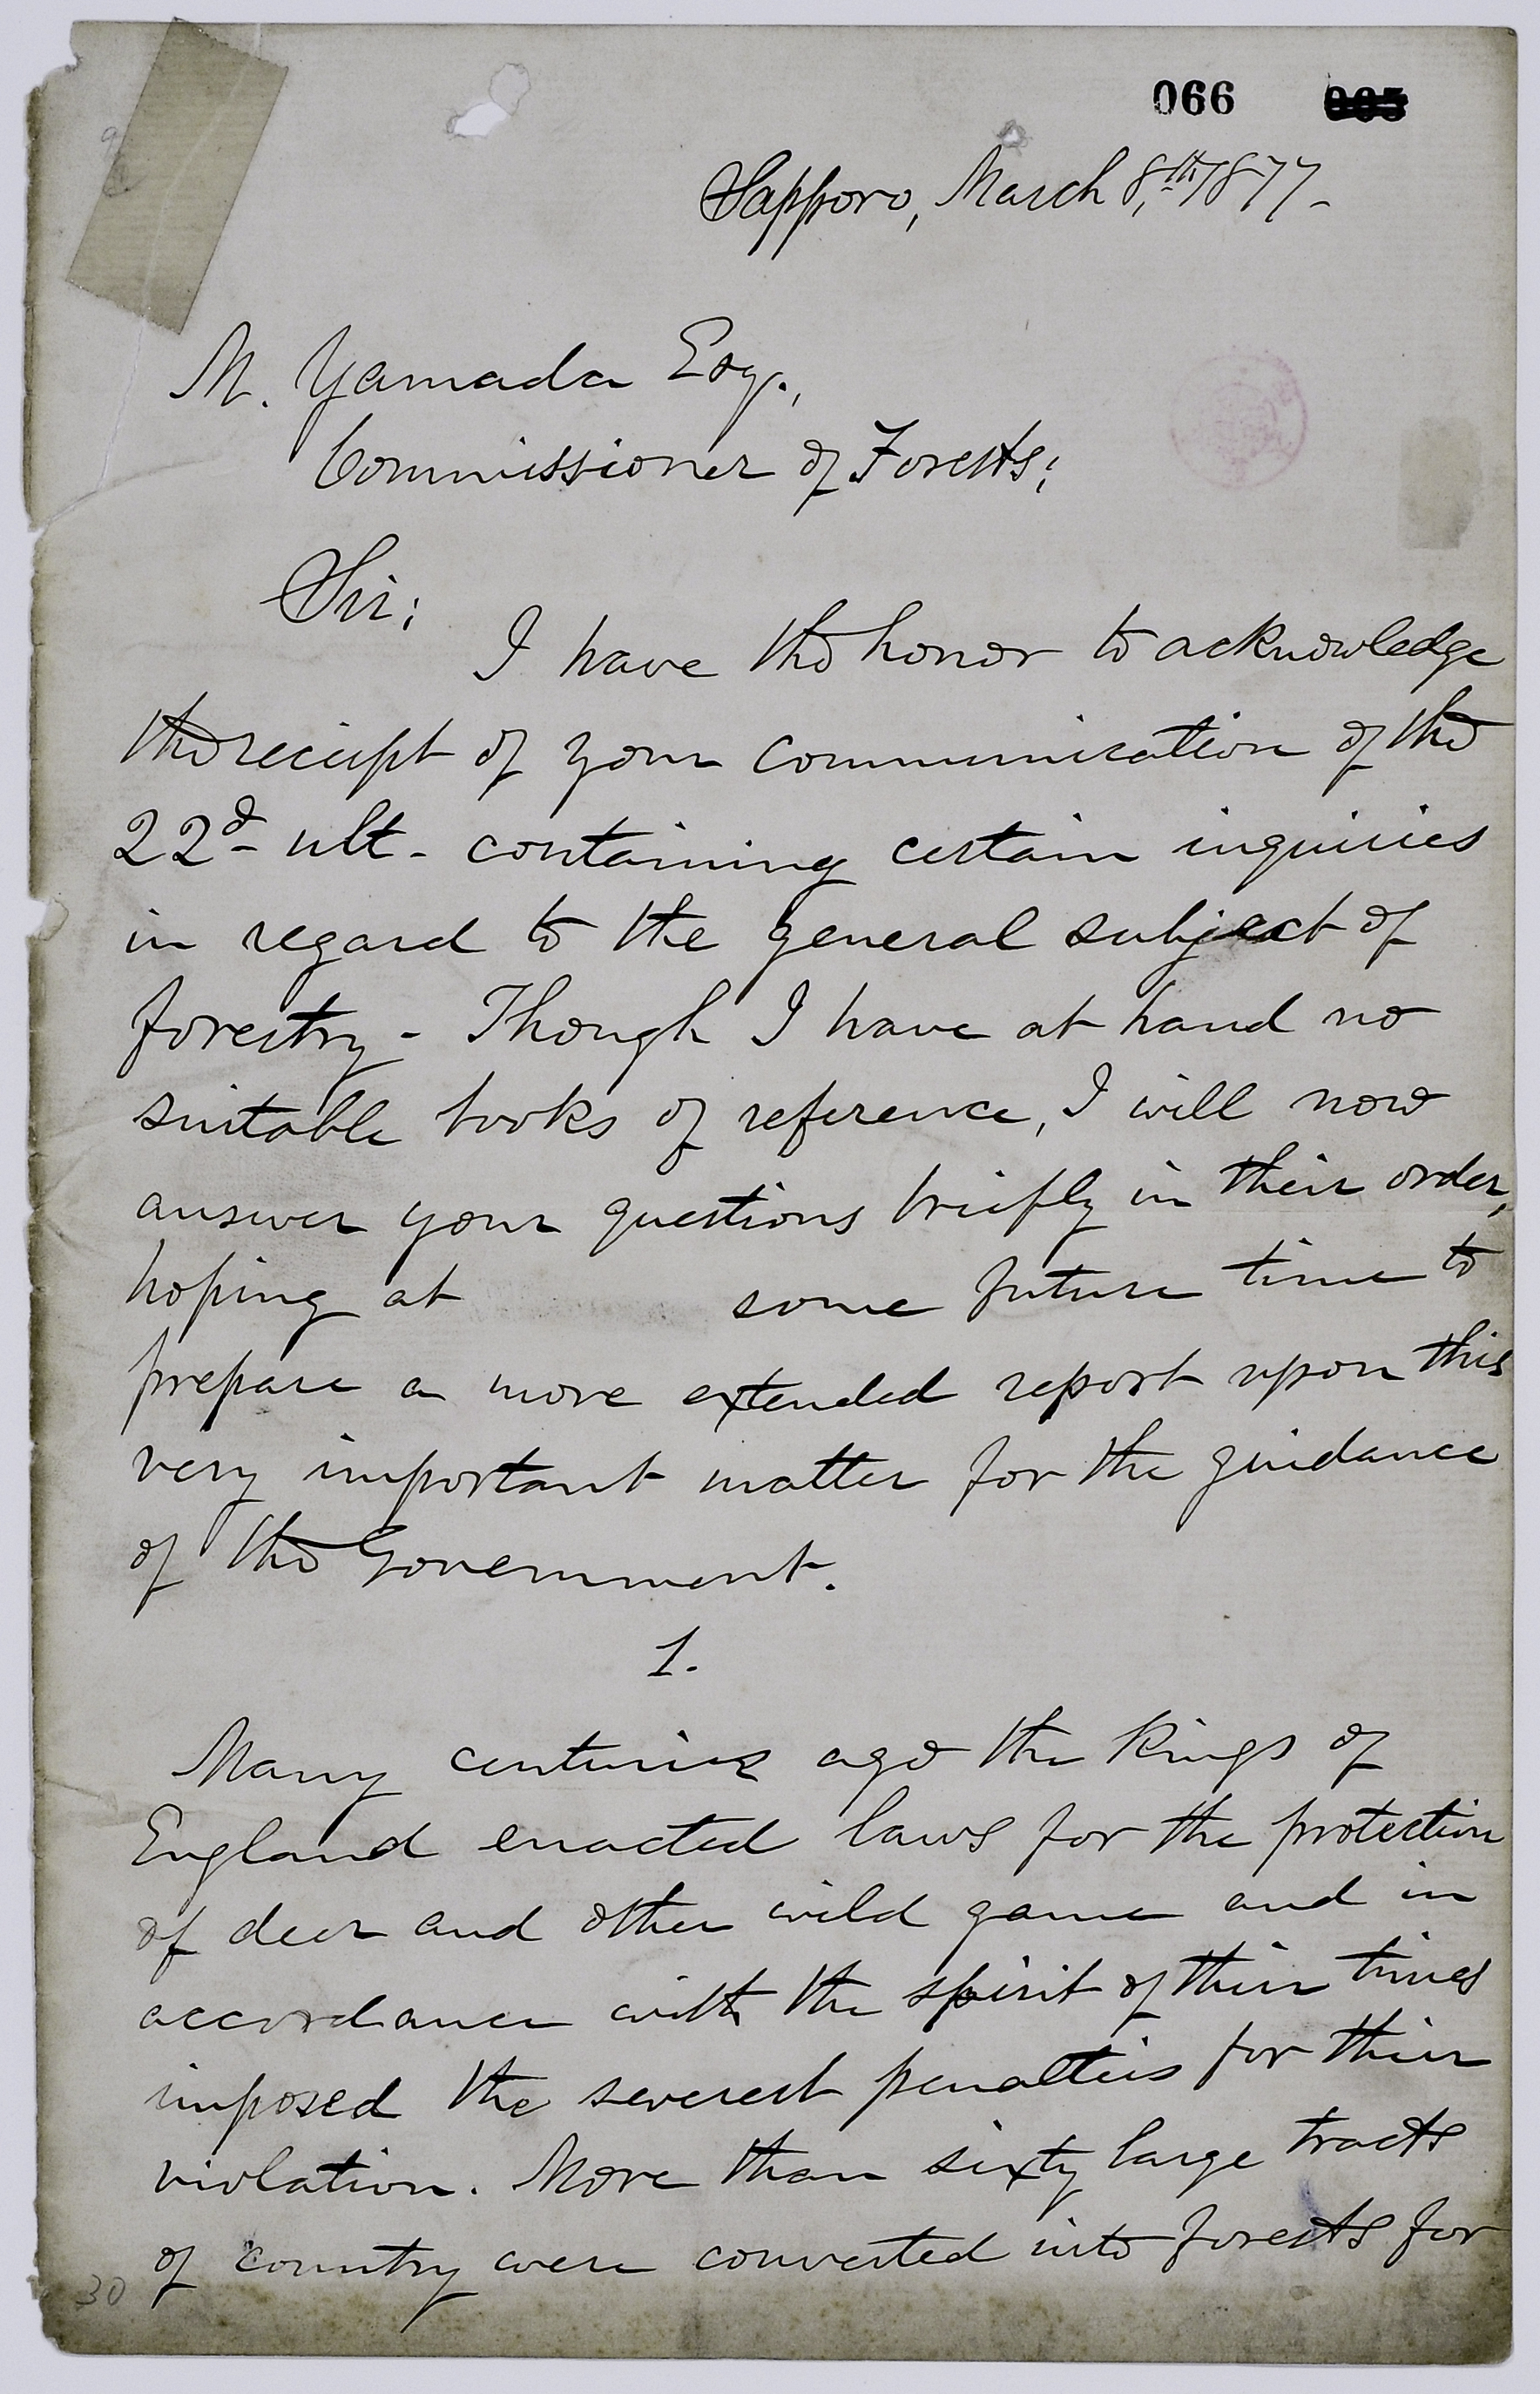 066 005
Sapporo, March 8,th 1877-
M. Yamada Esq.,
Commissioner of Forests;
Sir;
I have the honor to acknowledge
the reciept of your communication of the
22d- ult- containing certain inquiries
in regard to the general subject of
forestry- Though I have at hand no
suitable books of reference, I will now
answer your questions briefly in their order,
hoping at some future time to
prepare a more extended report upon this
very important matter for the guidance
of the Government.
1.
Many centuries ago the Kings of
England enacted laws for the protection
of deer and other wild game and in
accordance with the spirit of their times
imposed the severest penalties for their
violation. More than sixty large tracts
of country were converted into forests for
30